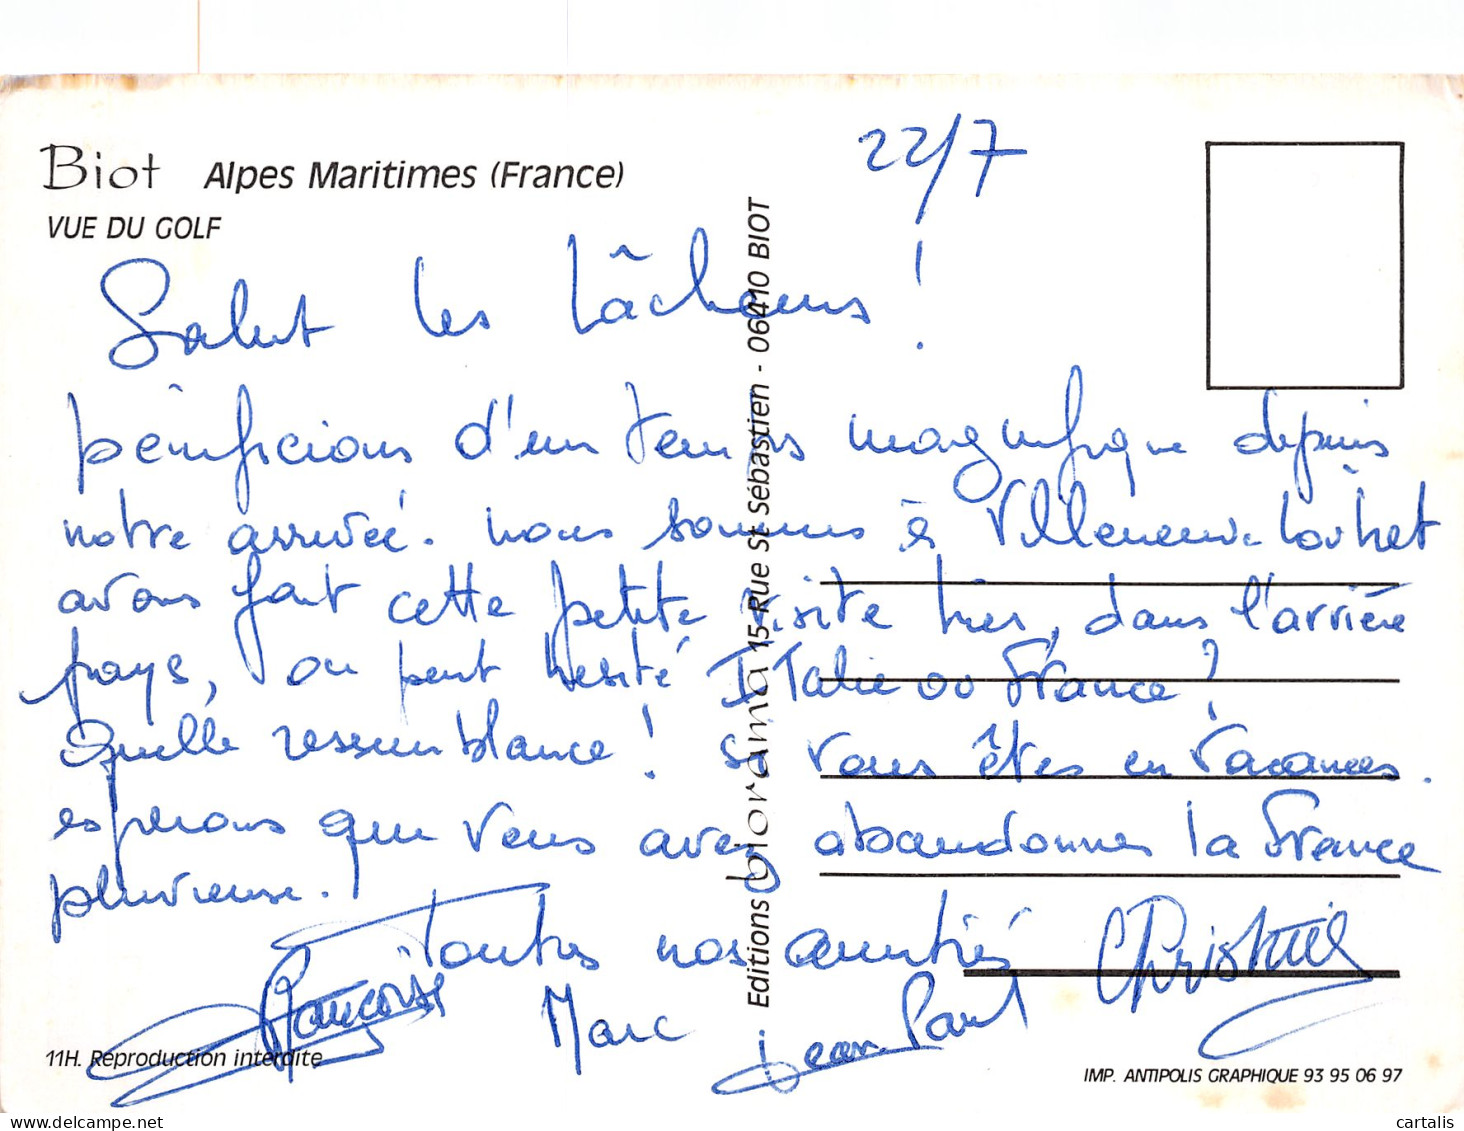 22/7
Biot Alpes Maritimes (France)
VUE DU GOLF
Salut les lâcheurs !
bénéficions d'un temps magnifique depuis
notre arrivée. nous sommes à Villeneuve Loubet
avons fait cette petite visite hier, dans l'arrière
pays, on peut hésité Italie ou France ?
Quelle ressemblance ! si vous êtes en vacances.
espérons que vous avez abandonnés la France
pluvieuse.
Toutes nos amitiés
Christine
Françoise
Marc
Jean-Paul
Editions biorama 15 Rue St Sébastien - 06410 BIOT
11H. Reproduction interdite
IMP. ANTIPOLIS GRAPHIQUE 93 95 06 97
cartalis